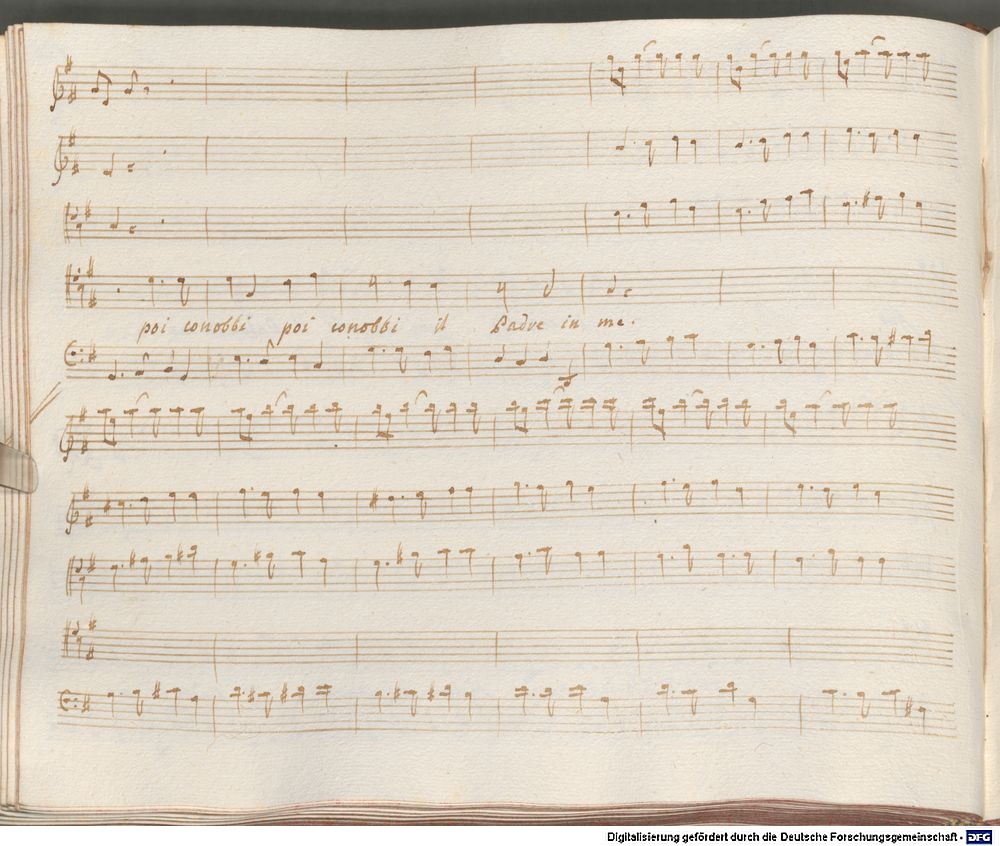 poi conobbi poi conobbi il Padre in me.
Digitalisierung gefördert durch die Deutsche Forschungsgemeinschaft - DFG